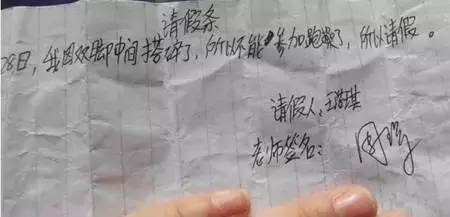 请假条
28日，我因双脚中间碎了，所以不能参加跑操了，所以请假。
请假人：王琪
老师签名：